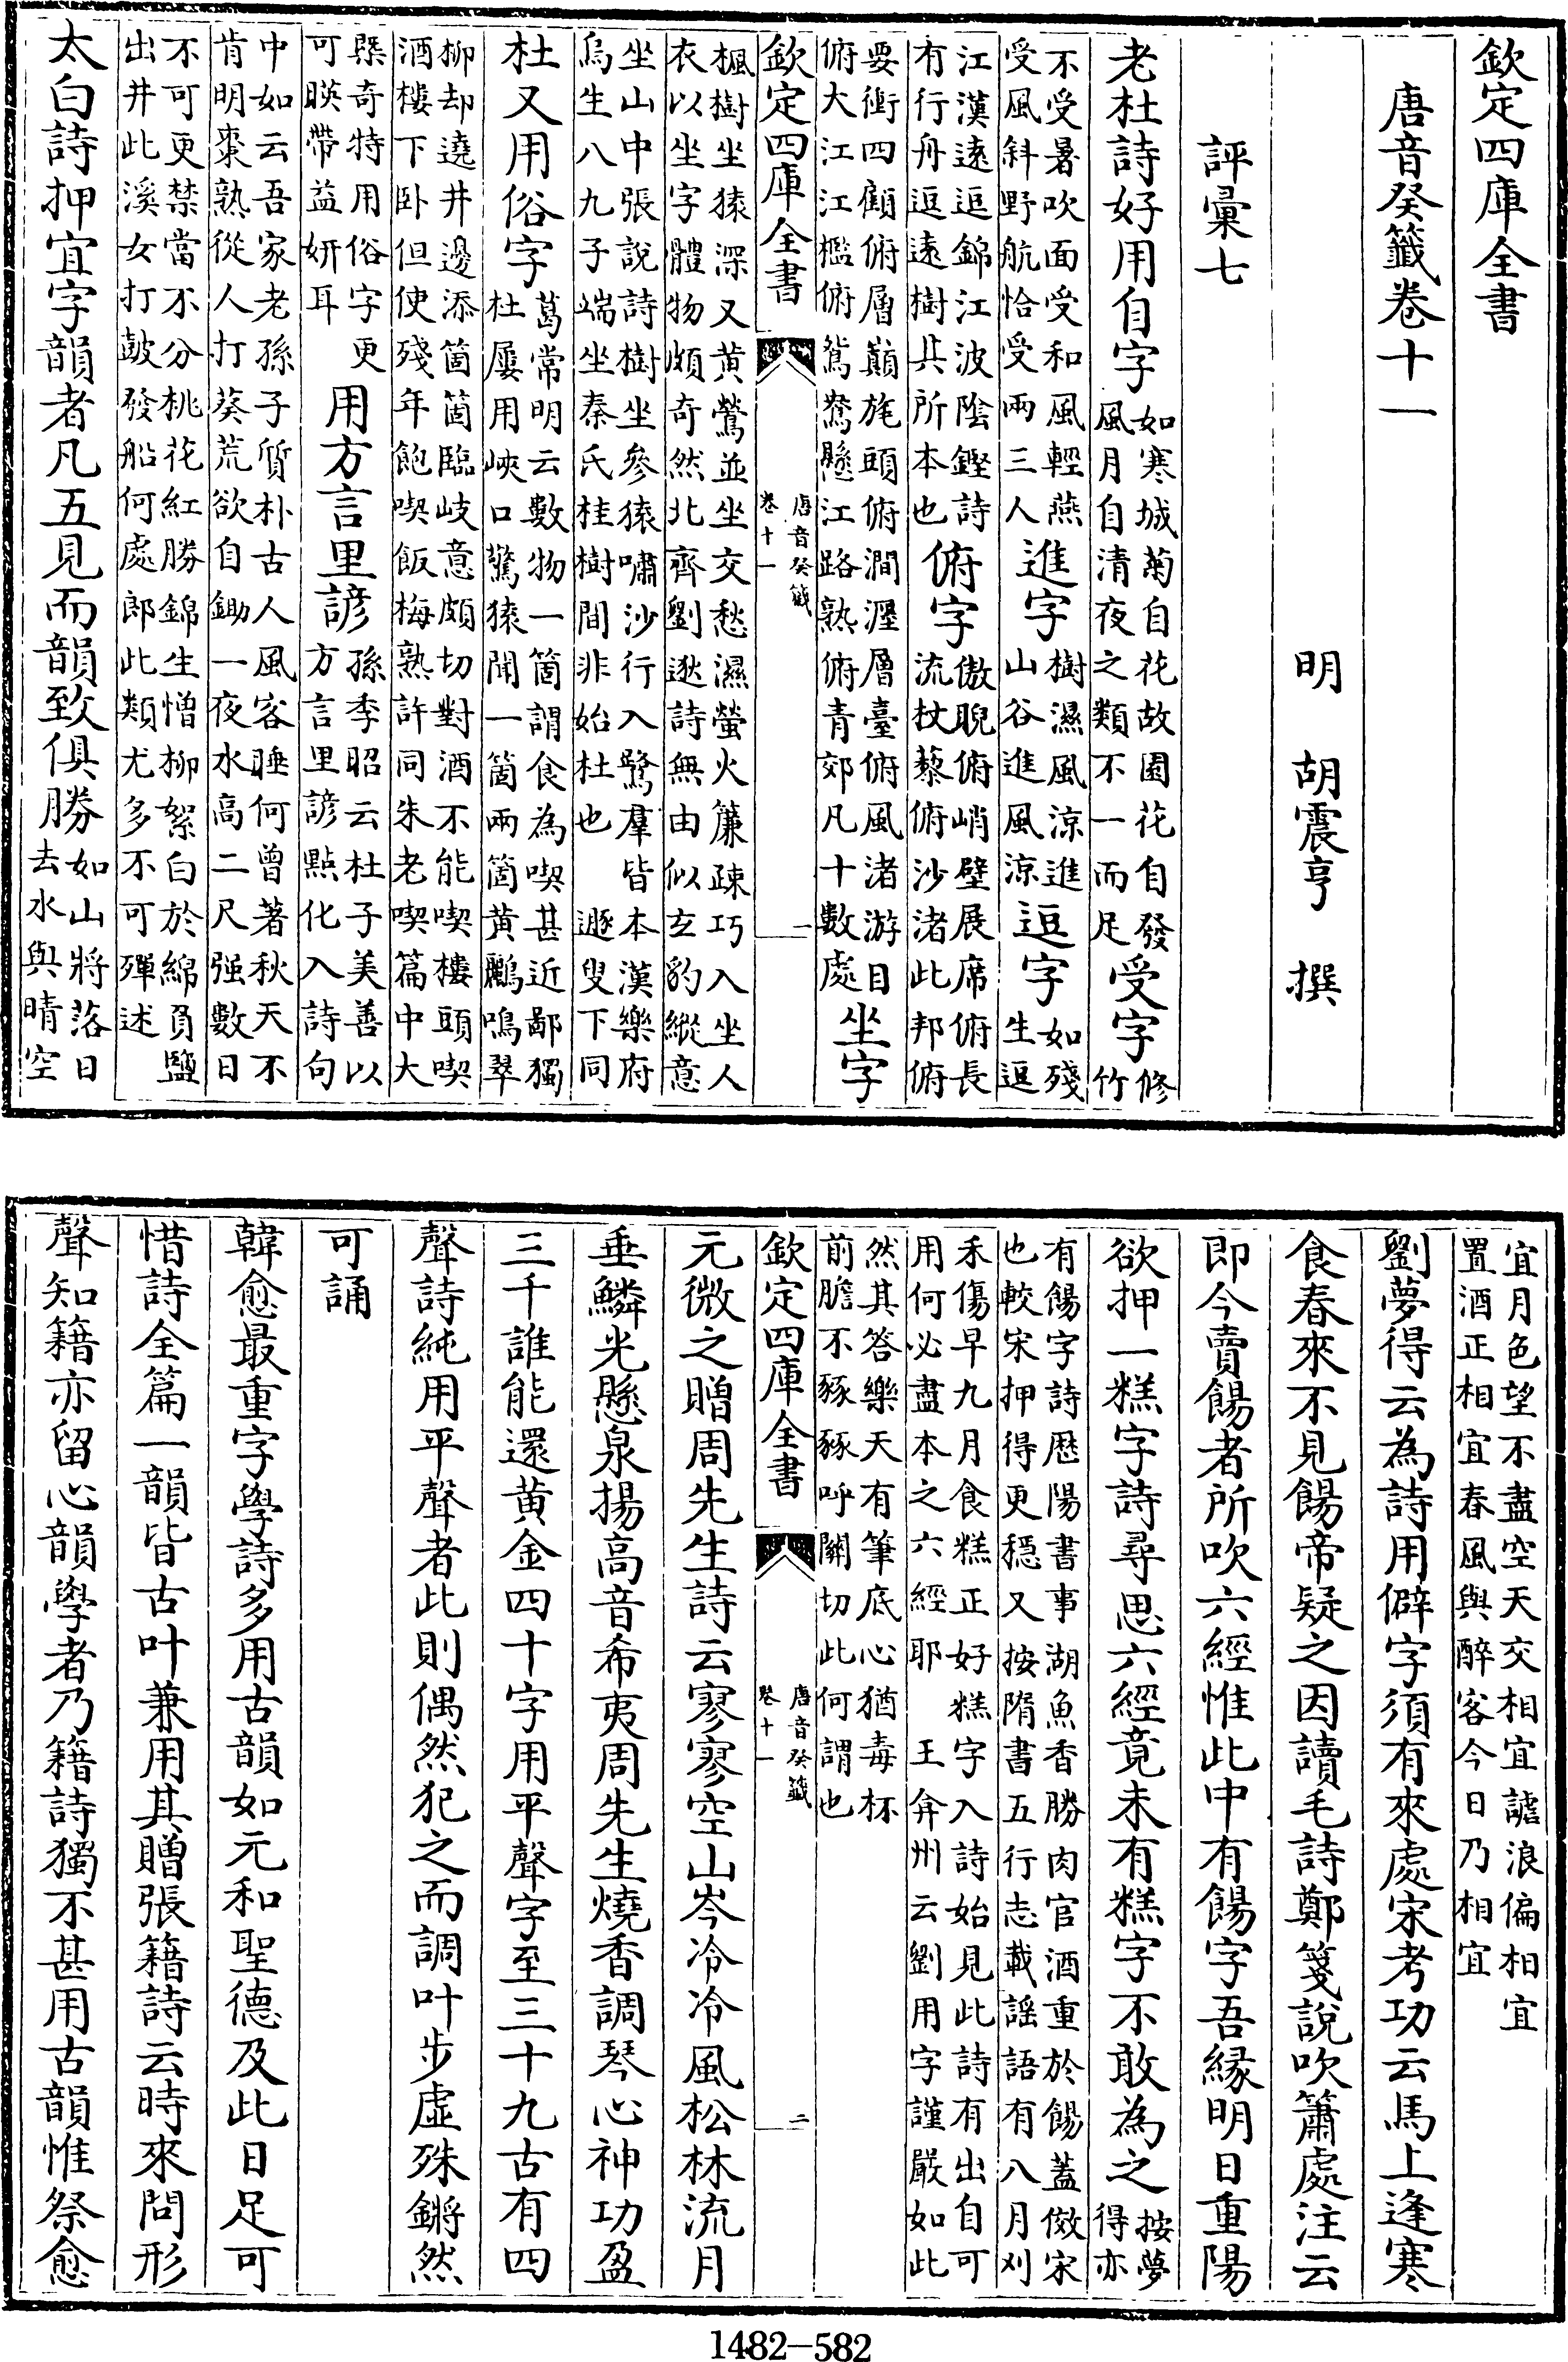 欽定四庫全書
唐音癸籤卷十一
明 胡震亨 撰
評彙七
老杜詩好用自字 如寒城菊自花故園花自發 風月自清夜之類不一而足 受字 修 竹
不受暑吹面受和風輕燕 受風斜野航恰受兩三人 進字 樹濕風涼進 山谷進風涼 逗字 如殘 生逗
江漢遠逗錦江波陰鏗詩 有行舟逗遠樹其所本也 俯字 傲睨俯峭壁展席俯長 流杖藜俯沙渚此邦俯
要衝四顧俯層巔旄頭俯澗瀍層臺俯風渚游目 俯大江江檻俯鴛鴦懸江路熟俯青郊凡十數處 坐字
欽定四庫全書 唐音癸籤 卷十一 一
楓樹坐猿深又黄鶯並坐交愁濕螢火簾疎巧入坐人
衣以坐字體物頗奇然北齊劉逖詩無由似玄豹縱意
坐山中張說詩樹坐參猿嘯沙行入鷺羣皆本漢樂府
烏生八九子端坐秦氏桂樹間非始杜也 遯叟下同
杜又用俗字 葛常明云數物一箇謂食為喫甚近鄙獨 杜屢用峽口驚猿聞一箇兩箇黄鸝鳴翠
柳却遶井邊添箇箇臨岐意頗切對酒不能喫樓頭喫
酒樓下卧但使殘年飽喫飯梅熟許同朱老喫篇中大
槩奇特用俗字更 可暎帶益妍耳 用方言里諺 孫季昭云杜子美善以 方言里諺點化入詩句
中如云吾家老孫子質朴古人風客睡何曾著秋天不
肯明棗熟從人打葵荒欲自鋤一夜水高二尺强數日
不可更禁當不分桃花紅勝錦生憎柳絮白於綿負鹽
出井此溪女打皷發船何處郎此類尤多不可殫述
太白詩押宜字韻者凡五見而韻致俱勝 如山將落日 去水與晴空
宜月色望不盡空天交相宜謔浪偏相宜
置酒正相宜春風與醉客今日乃相宜
劉夢得云為詩用僻字須有來處宋考功云馬上逢寒
食春來不見餳帝疑之因讀毛詩鄭箋說吹簫處注云
即今賣餳者所吹六經惟此中有餳字吾緣明日重陽
欲押一糕字詩尋思六經竟未有糕字不敢為之 按夢 得亦
有餳字詩歷陽書事湖魚香勝肉官酒重於餳蓋倣宋
也較宋押得更穩又按隋書五行志載謡語有八月刈
禾傷早九月食糕正好糕字入詩始見此詩有出自可
用何必盡本之六經耶 王弇州云劉用字謹嚴如此
然其答樂天有筆底心猶毒杯
前膽不豩豩呼關切此何謂也
欽定四庫全書 唐音癸籤 卷十一 二
元微之贈周先生詩云寥寥空山岑冷冷風松林流月
垂鱗光懸泉揚高音希夷周先生燒香調琴心神功盈
三千誰能還黄金四十字用平聲字至三十九古有四
聲詩純用平聲者此則偶然犯之而調叶步虛殊鏘然
可誦
韓愈最重字學詩多用古韻如元和聖德及此日足可
惜詩全篇一韻皆古叶兼用其贈張籍詩云時來問形
聲知籍亦留心韻學者乃籍詩獨不甚用古韻惟祭愈
1482-582